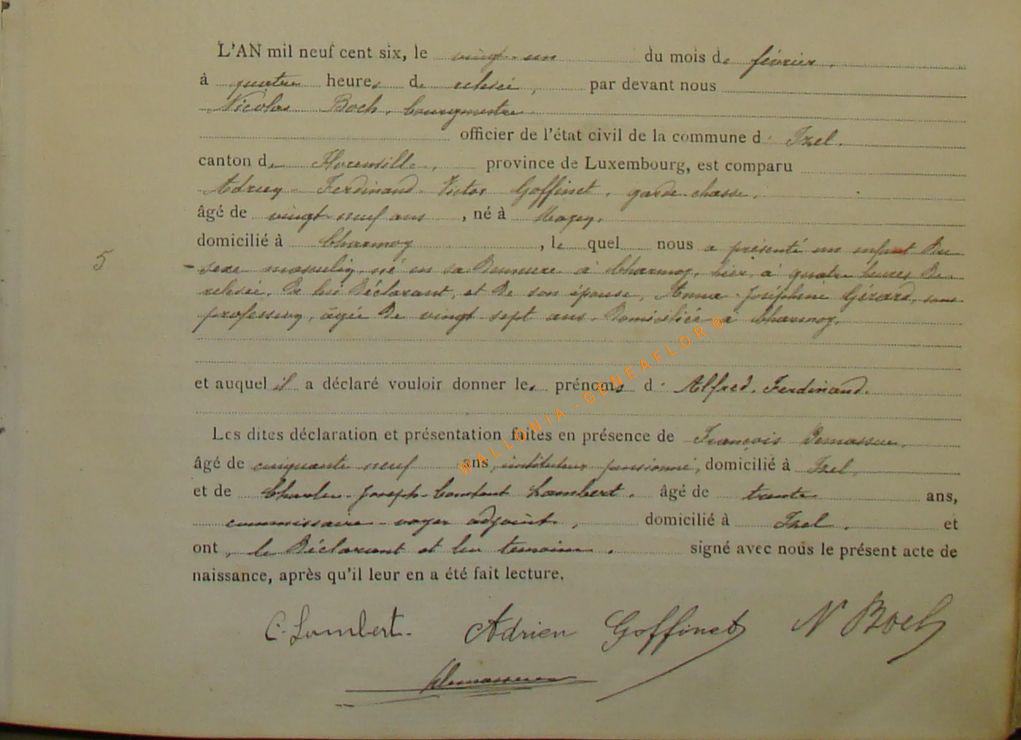 L'AN mil neuf cent six, le vingt-un du mois de février,
à quatre heures de relevée, par devant nous
Nicolas Boch, bourgmestre
officier de l'état civil de la commune d' Izel.
canton de Florenville, province de Luxembourg, est comparu
Adrien Ferdinand Victor Goffinet, garde-chasse,
âgé de vingt neuf ans, né à
domicilié à Charmoy, lequel nous a présenté un enfant du
5
sexe masculin, né en sa demeure à Charmoy, hier, à quatre heures de
relevée, de lui déclarant, et de son épouse, Anna Joséphine Gérard, sans
profession, âgée de vingt sept ans, domiciliée à Charmoy,
et auquel il a déclaré vouloir donner les prénoms d' Alfred, Ferdinand.
Les dites déclaration et présentation faites en présence de François
âgé de cinquante neuf ans, instituteur pensionné, domicilié à Izel
et de Charles-Joseph-Constant Lambert, âgé de trente ans,
commissaire-voyer adjoint, domicilié à Izel, et
ont, le déclarant et les témoins, signé avec nous le présent acte de
naissance, après qu'il leur en a été fait lecture.
C. Lambert. Adrien Goffinet N Boch
WALLONIA-GENEAFLOR®